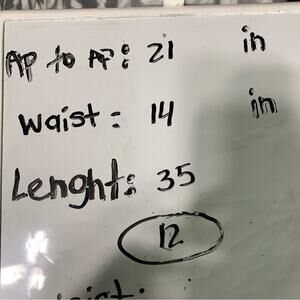 AP to AP: 21 in
Waist: 14 in
Lenght: 35
12